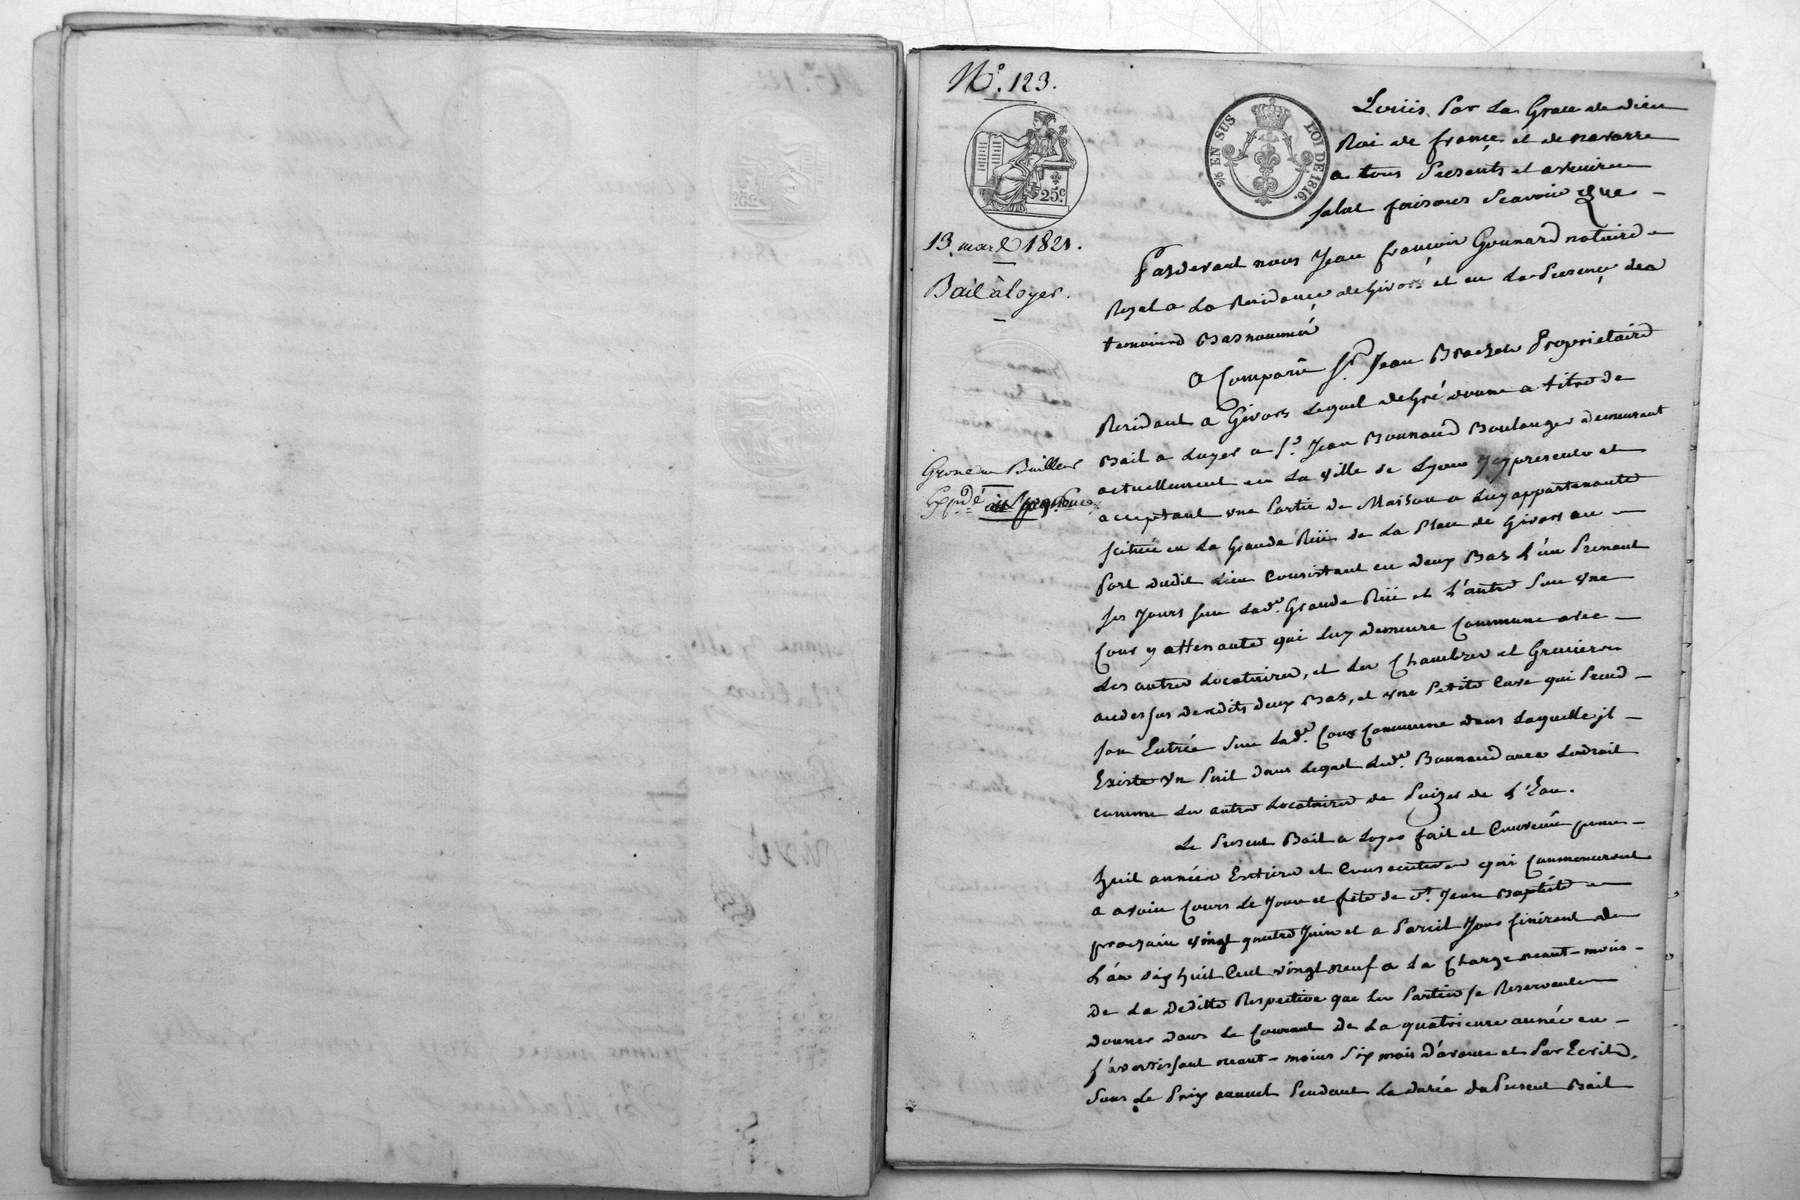 N.° 123.
25c
2/10 EN SUS LOI DE 1816.
13 mars 1821.
Bail à loyer.
Grosse au Bailleur
Expdé
Louis Par La Grace de dieu
Roi de france et de navarre
a tous Presents et avenir
salut faisons Scavoir Que
Pardevant nous Jean françois Gounard notaire
Royal a La Residance de Givors et en La Presence des
temoins Basnommés
A Comparû Sr. Jean Brachet Proprietaire
Residant a Givors Lequel de Gré donne a titre de
Bail a Loyer a Sr. Jean Bonnaud Boulanger demeurant
actuellement en La ville de Lyon Icy present et
acceptant une Partie de Maison a Luy appartenante
scituée en La Grande Rüe de La Place de Givors au
Port dudit Lieu Consistant en deux Bas L'un Prenant
ses Jours sur Lade. Grande Rüe et L'autre sur une
Cour y attenante qui Luy demeure Commune avec
Les autres Locataires, et Les Chambres et Greniers
audessus desdits deux Bas, et une Petite Cave qui Prend
son Entrée sur Lade. Cour Commune dans Laquelle il
Existe un Puit dans Lequel Led. Bonnaud aura Ledroit
comme Les autres Locataires de Puizer de L'Eau.
Le Present Bail a Loyer fait et Convenu pour
huit années Entieres et Consecutives qui Commenceront
a avoir Cours Le Jour et fête de St. Jean Baptiste
prochain vingt quatre Juin et a Pareil Jour finiront de
L'an dix huit Cent vingt neuf a La Charge neant-mois
de La Deditte Respective que Les Parties se Reservent
donner dans Le Courant de La quatrieme année en
s'avertissant neant-moins Six mois d'avance et Par Ecrit,
Sous Le Prix annuel Pendant La durée du Present Bail